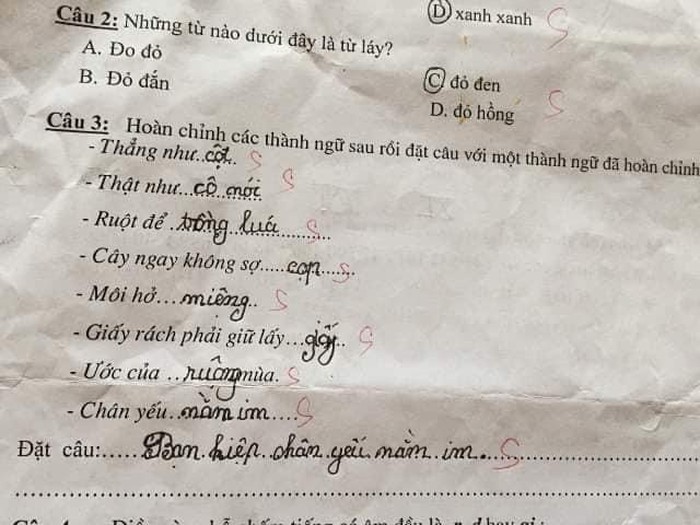 Câu 2: Những từ nào dưới đây là từ láy?
D xanh xanh S
A. Đo đỏ
B. Đỏ đắn
C. đỏ đen
D. đỏ hồng S
Câu 3: Hoàn chỉnh các thành ngữ sau rồi đặt câu với một thành ngữ đã hoàn chỉnh
- Thẳng như..cột.. S
- Thật như...cô nói S
- Ruột để ..trồng luá........... S
- Cây ngay không sợ.....cạn...... S
- Môi hở...miệng.. S
- Giấy rách phải giữ lấy...giấy.. S
- Ước của ..ruộng mùa. S
- Chân yếu..nằm im.... S
Đặt câu:.....Bạn hiệp chân yếu nằm im... S